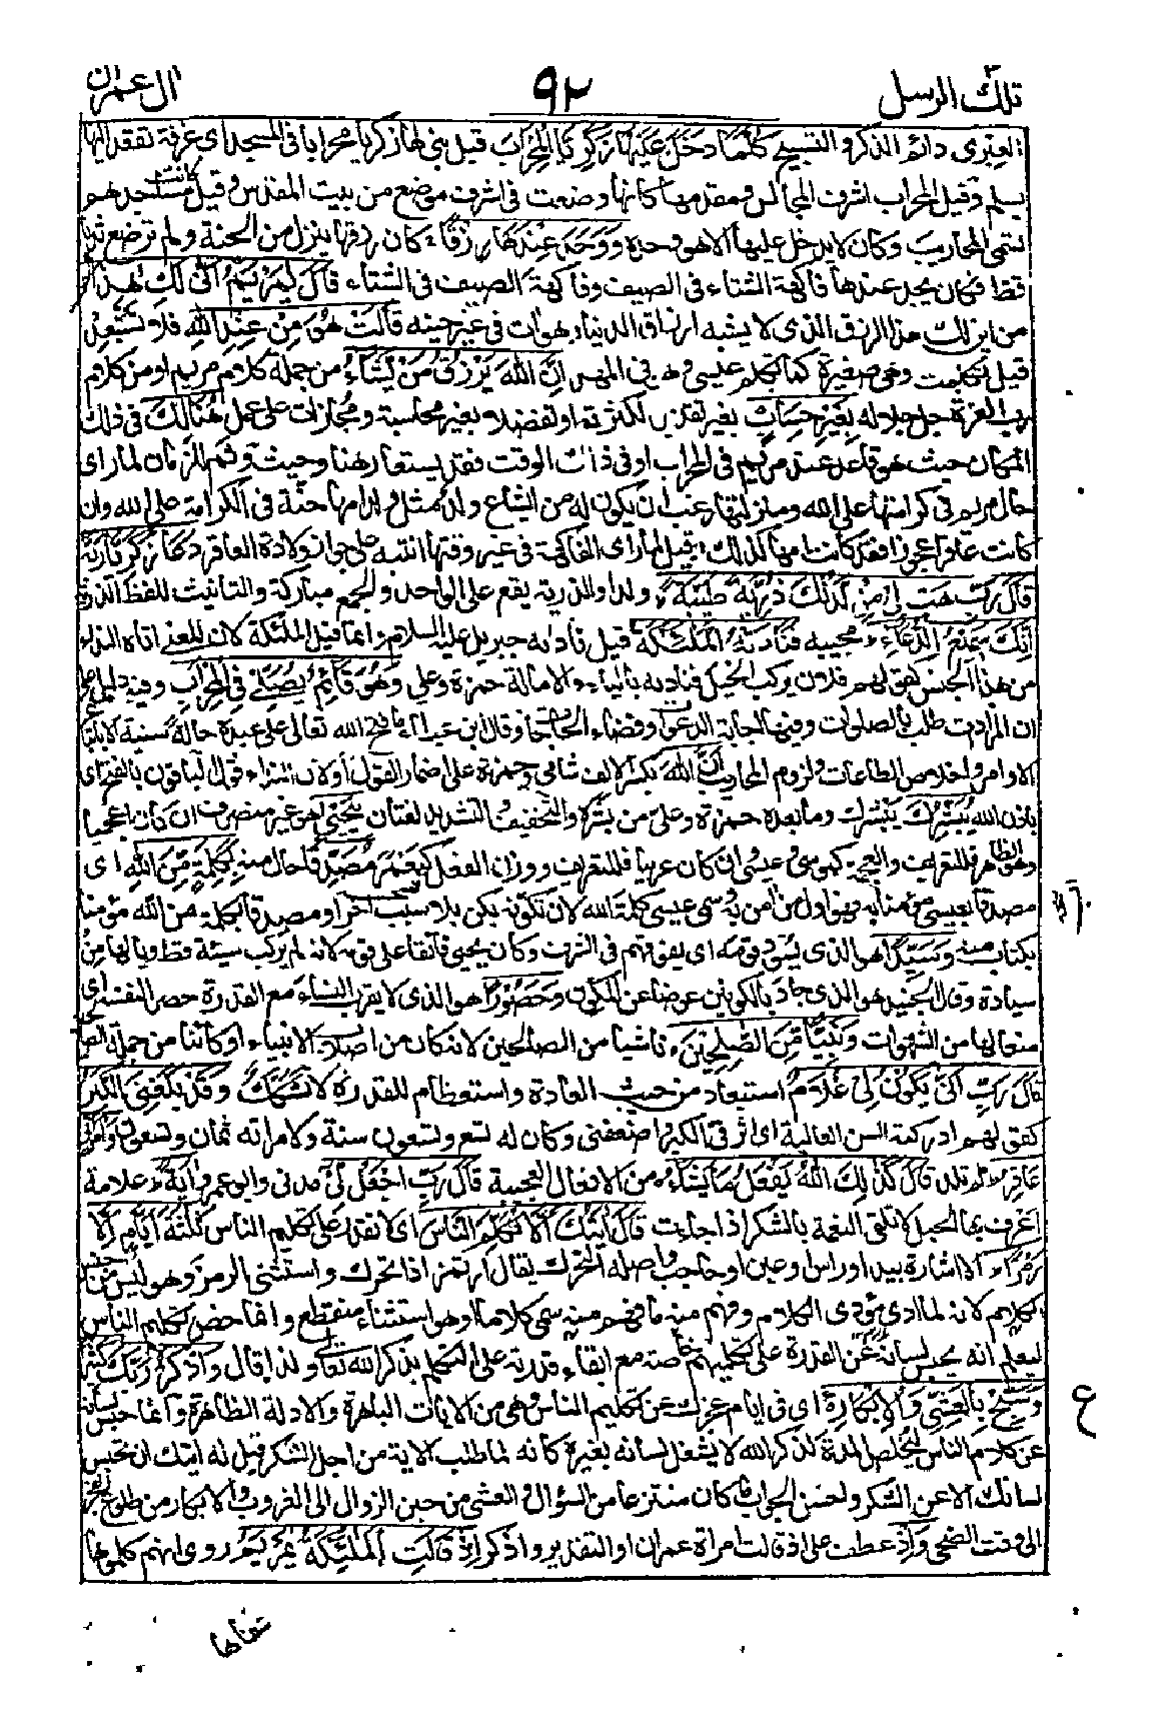 تلك الرسل ٩٢ ال عمران
العبرى دائم الذكر والتسبيح كُلَّمَا دَخَلَ عَلَيْهَا زَكَرِيَّا الْمِحْرَابَ قيل بنى لها زكريا محرابا فى المسجد اى غرفة تصعد اليها
بسلم وقيل المحراب اشرف المجالس ومقدمها كانها وضعت فى اشرف موضع من بيت المقدس وقيل كانت مساجدهم
تسمى المحاريب وكان لا يدخل عليها الا هو وحده وَوَجَدَ عِنْدَهَا رِزْقًا كان رزقها ينزل من الجنة ولم ترضع ثديا
قط فكان يجد عندها فاكهة الشتاء فى الصيف وفاكهة الصيف فى الشتاء قَالَ يٰمَرْيَمُ اَنّٰى لَكِ هٰذَا
من اين لك هذا الرزق الذى لا يشبه ارزاق الدنيا وهو اٰت فى غير حينه قَالَتْ هُوَ مِنْ عِنْدِ اللّٰهِ فلا تستبعد
قيل تكلمت وهى صغيرة كما تكلم عيسى وهو فى المهد اِنَّ اللّٰهَ يَرْزُقُ مَنْ يَّشَآءُ من جملة كلام مريم او من كلام
رب العزة جل جلاله بِغَيْرِ حِسَابٍ بغير تقدير لكثرته او تفضلا بغير محاسبة ومجازات على عمل هُنَالِكَ فى ذلك
المكان حيث هو قاعد عند مريم فى المحراب او فى ذلك الوقت فقد يستعار هنا وحيث وثم للزمان لما راى
حال مريم فى كرامتها على الله ومنزلتها رغب ان يكون له من ايشاع ولد مثل ولد امها حنّة فى الكرامة على الله وان
كانت عاقرا عجوزا فقد كانت امها كذلك وقيل لما راى الفاكهة فى غير وقتها انتبه على جواز ولادة العاقر دَعَا زَكَرِيَّا رَبَّهٗ
قَالَ رَبِّ هَبْ لِىْ مِنْ لَّدُنْكَ ذُرِّيَّةً طَيِّبَةً ولدا والذرية يقع على الواحد والجمع مباركة والتانيث للفظ الذرية
اِنَّكَ سَمِيْعُ الدُّعَآءِ مجيبه فَنَادَتْهُ الْمَلٰٓئِكَةُ قيل ناداه جبريل عليه السلام وانما قيل الملئكة لان المعنى اتاه النداء
من هذا الجنس كقولهم فلان يركب الخيل فناديه بالياء والامالة حمزة وعلى وَهُوَ قَآئِمٌ يُّصَلِّىْ فِى الْمِحْرَابِ وفيه دليل على
ان المرادات تطلب بالصلوات وفيها اجابة الدعوات وقضاء الحاجات وقال ابن عطاء ما فتح الله تعالى على عبده حالة سنية الا باتباع
الاوامر واخلاص الطاعات ولزوم المحاريب اَنَّ اللّٰهَ بكسر الالف شامى وحمزة على اضمار القول او لان النداء قول الباقون بالفتح اى
بان الله يُبَشِّرُكَ يبشرك وما بعده حمزة وعلى من بشره والتخفيف والتشديد لغتان بِيَحْيٰى هو غير منصرف ان كان اعجميا
وهو الظاهر فللتعريف والعجمة كموسى وعيسى وان كان عربيا فللتعريف ووزن الفعل كيعمر مُصَدِّقًا حال منه بِكَلِمَةٍ مِّنَ اللّٰهِ اى
مصدقا بعيسى مؤمنا به وهو اول من اٰمن به وسمى عيسى كلمة الله لان تكونه بكن بلا سبب اخر او مصدقا بكلمة من الله مؤمنا
بكتاب منه وَسَيِّدًا هو الذى يسود قومه اى يفوقهم فى الشرف وكان يحيى فائقا على قومه لانه لم يركب سيئة قط ويا لها من
سيادة وقال الجنيد هو الذى جاد بالكونين عوضا عن المكون وَحَصُوْرًا هو الذى لا يقرب النساء مع القدرة حصر النفسه اى
منعا لها من الشهوات وَنَبِيًّا مِّنَ الصّٰلِحِيْنَ ناشيا من الصالحين لانه كان من اصلاب الانبياء او كائنا من جملة الصالحين
قَالَ رَبِّ اَنّٰى يَكُوْنُ لِىْ غُلٰمٌ استبعاد من حيث العادة واستعظام للقدرة لا تشكك وَقَدْ بَلَغَنِىَ الْكِبَرُ
كقولهم ادركته السن العالية اى اثر فى الكبر واضعفنى وكان له تسع وتسعون سنة ولامراته ثمان وتسعون وَامْرَاَتِىْ
عَاقِرٌ لم تلد قَالَ كَذٰلِكَ اللّٰهُ يَفْعَلُ مَا يَشَآءُ من الافعال العجيبة قَالَ رَبِّ اجْعَلْ لِّىْ مدنى وابو عمرو اٰيَةً علامة
اعرف بها الحبل لاتلقى النعمة بالشكر اذا جاءت قَالَ اٰيَتُكَ اَلَّا تُكَلِّمَ النَّاسَ اى لا تقدر على تكليم الناس ثَلٰثَةَ اَيَّامٍ اِلَّا
رَمْزًا الا اشارة بيد او راس او عين او حاجب واصله التحرك يقال ارتمز اذا تحرك واستثنى الرمز وهو ليس من جنس
الكلام لانه لما ادى مؤدى الكلام وفهم منه ما يفهم منه سمى كلاما او هو استثناء منقطع وانما خص تكليم الناس
ليعلم انه يحبس لسانه عن القدرة على تكليمهم خاصة مع ابقاء قدرته على التكلم بذكر الله تعالى ولذا قال وَاذْكُرْ رَّبَّكَ كَثِيْرًا
وَّسَبِّحْ بِالْعَشِىِّ وَالْاِبْكَارِ اى فى ايام عجزك عن تكليم الناس وهى من الايات الباهرة والادلة الظاهرة وانما حبس لسانه
عن كلام الناس ليخلص المدة لذكر الله لا يشغل لسانه بغيره كانه لما طلب الاية من اجل الشكر قيل له ايتك ان تحبس
لسانك الا عن الشكر واحسن الجواب ما كان منتزعا من السؤال والعشى من حين الزوال الى الغروب والابكار من طلوع الفجر
الى وقت الضحى وَاِذْ عطف على اذ قالت امراة عمران او التقدير واذكر اذ قَالَتِ الْمَلٰٓئِكَةُ يٰمَرْيَمُ روى انهم كلموها
ع
شفاها